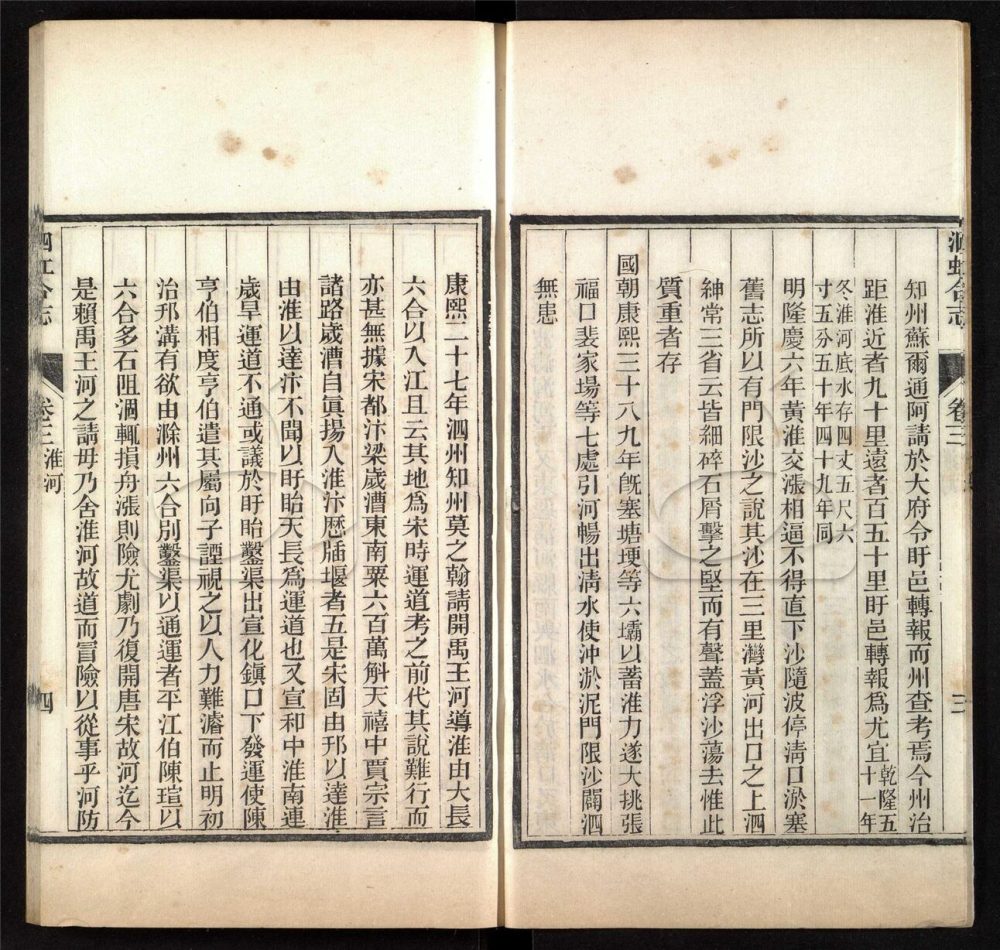 泗虹合志
卷三
三
知州蘇爾通阿請於大府令盱邑轉報而州查考焉今州治
距淮近者九十里遠者百五十里盱邑轉報爲尤宜乾隆五十一年
冬淮河底水存四丈五尺六
寸五分五十年四十九年同
明隆慶六年黃淮交漲相逼不得直下沙隨波停淸口淤塞
舊志所以有門限沙之說其沙在三里灣黃河出口之上泗
紳常三省云皆細碎石屑擊之堅而有聲蓋浮沙蕩去惟此
質重者存
國朝康熙三十八九年旣塞塘埂等六壩以蓄淮力遂大挑張
福口裴家場等七處引河暢出淸水使沖淤泥門限沙闢泗
無患
康熙二十七年泗州知州莫之翰請開禹王河導淮由天長
六合以入江且云其地爲宋時運道考之前代其說難行而
亦甚無據宋都汴梁歲漕東南粟六百萬斛天禧中賈宗言
諸路歲漕自眞揚入淮汴歷牐堰者五是宋固由邗以達淮
由淮以達汴不聞以盱眙天長爲運道也又宣和中淮南連
歲旱運道不通或議於盱眙鑿渠出宣化鎭口下發運使陳
亨伯相度亨伯遣其屬向子諲視之以人力難濬而止明初
治邗溝有欲由滁州六合別鑿渠以通運者平江伯陳瑄以
六合多石阻涸輒損舟漲則險尤劇乃復開唐宋故河迄今
是賴禹王河之請毋乃舍淮河故道而冒險以從事乎河防
泗虹合志
卷三 淮河
四